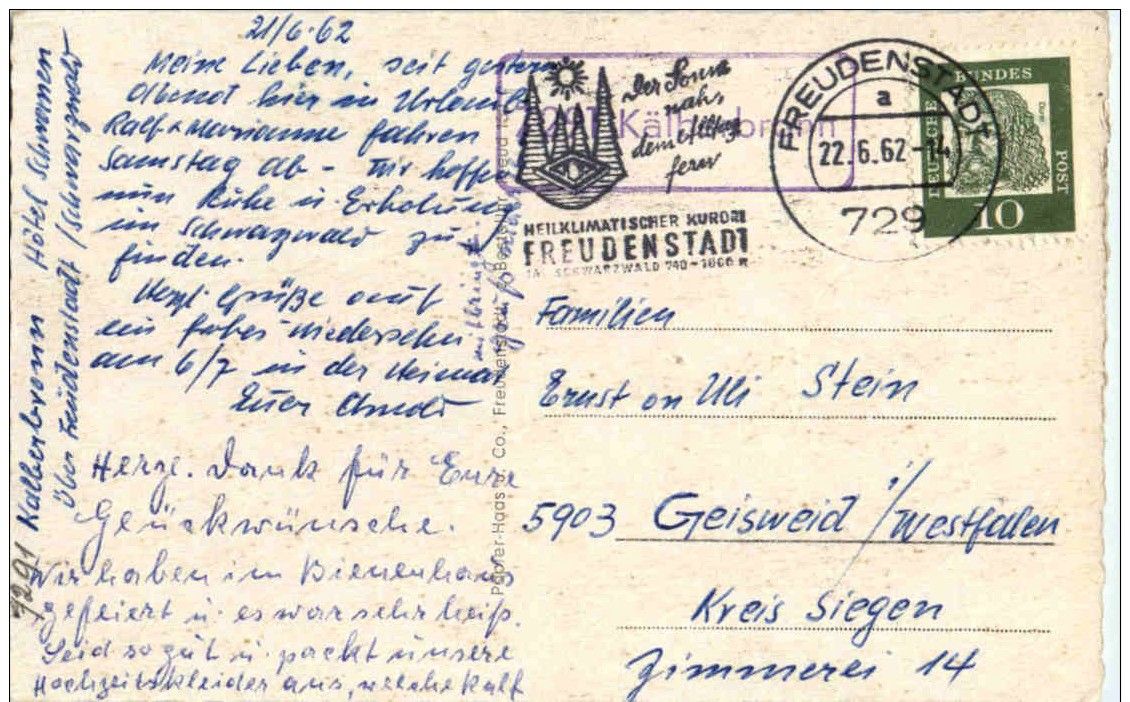 21/6.62
Meine Lieben, seit gestern
Abend hier in Urlaub
Ralf + Marianne fahren
Samstag ab - Wir hoffen
nun Ruhe u. Erholung
im Schwazwald zu
finden.
Herzl Grüße auf
ein frohes Wiedersehn
am 6/7 in der Heimat
Euer
Herzl. Dank für Eure
Glückwünsche.
Wir haben im Bienenhaus
gefeiert u. es war sehr heiß.
Seid so gut u. packt unsere
Hochzeitskleider aus, welche Ralf
mitbringt.
7291 Kälberbronn Hotel Schwanen
über Freudenstadt / Schwarzwald
Papier-Haas u. Co., Freudenstadt
7291 Kälberbronn
Der Sonne
nah
dem Alltag
fern
HEILKLIMATISCHER KURORT
FREUDENSTADT
IM SCHWARZWALD 740-1000 M
FREUDENSTADT
a
22.6.62-14
729
DEUTSCHE BUNDESPOST
Dürer
10
Familien
Ernst on Uli Stein
5903 Geisweid i/Westfalen
Kreis Siegen
Zimmerei 14